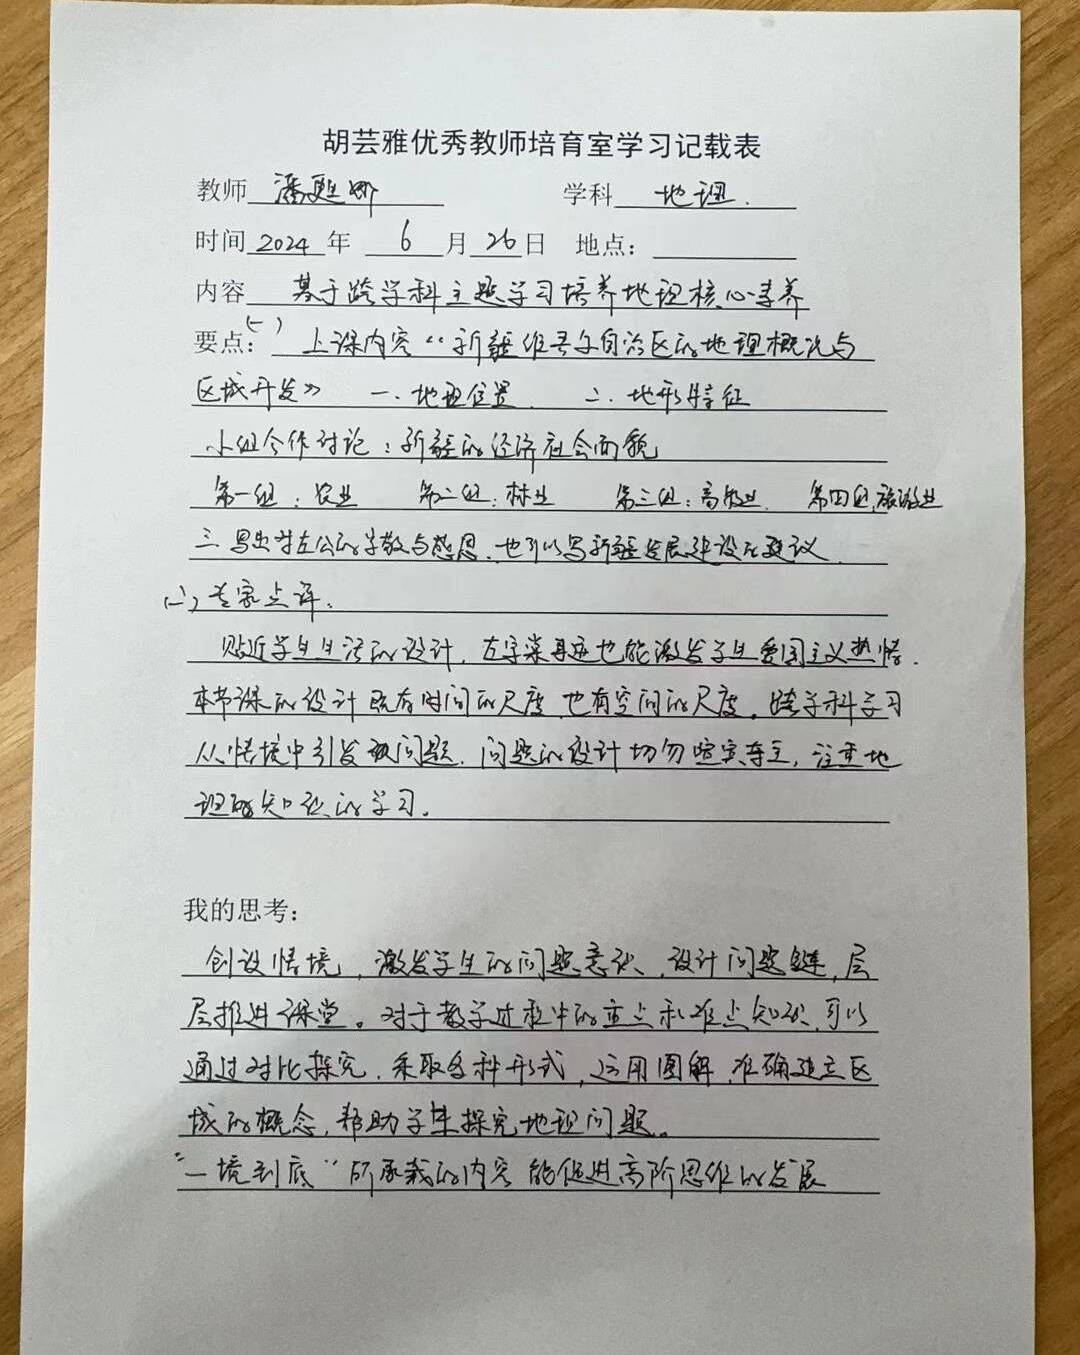 胡芸雅优秀教师培育室学习记载表
教师 潘 娜 学科 地理.
时间 2024 年 6 月 26 日 地点：
内容 基于跨学科主题学习培养地理核心素养
要点：(一) 上课内容“新疆维吾尔自治区的地理概况与
区域开发》 一. 地理位置. 二. 地形特征
小组合作讨论：新疆的经济社会面貌
第一组：农业 第二组：林业 第三组：畜牧业. 第四组:旅游业
三. 写出对左公的崇敬与感恩、也可以写新疆发展建设的建议.
(二) 专家点评.
贴近学生生活的设计, 左宗棠事迹也能激发学生爱国主义热情.
本节课的设计既有时间的尺度, 也有空间的尺度。跨学科学习
从情境中引发 问题. 问题的设计切勿喧宾夺主, 注重地
理 知识的学习。
我的思考：
创设情境, 激发学生的问题意识, 设计问题链, 层
层推进课堂。对于教学过程中的重点和难点知识, 可以
通过对比探究. 采取多种形式, 运用图解. 准确建立区
域的概念, 帮助学生探究地理问题。
“一境到底”所承载的内容能促进高阶思维的发展